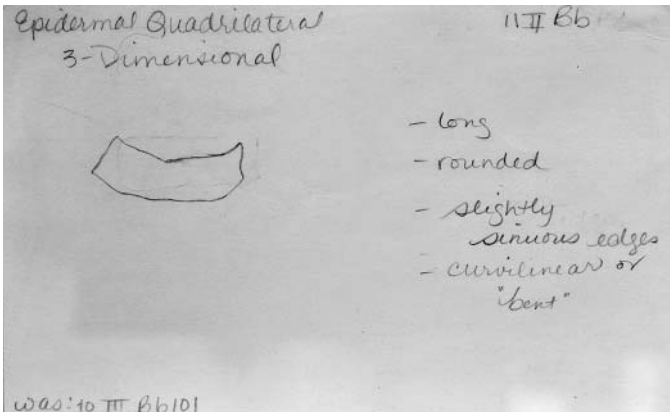 Epidermal Quadrilateral 11 II Bb
3-Dimensional
- long
- rounded
- slightly
sinuous edges
- curvilinear or
"bent"
was: 10 III Bb101